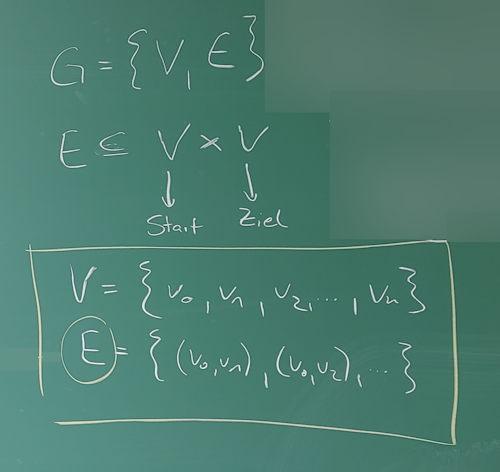 G = {V, E}
E ⊆ V × V
↓ ↓
Start Ziel
V = {v₀, v₁, v₂, ..., vₙ}
E = {(v₀, v₁), (v₀, v₂), ...}